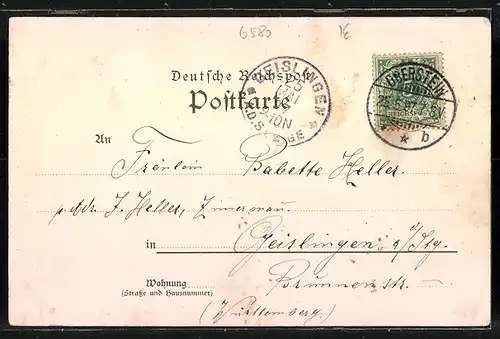 6580
Deutsche Reichspost
Postkarte
GEISLINGEN
MAI
OBERSTEIN
25.5.97
* b
An
Fräulein Babette Heller.
p. Adr. J. Heller, Zimermañ.
in Geislingen a/Stg.
Wohnung Brunnenstr.
(Straße und Hausnummer)
(Württemberg)